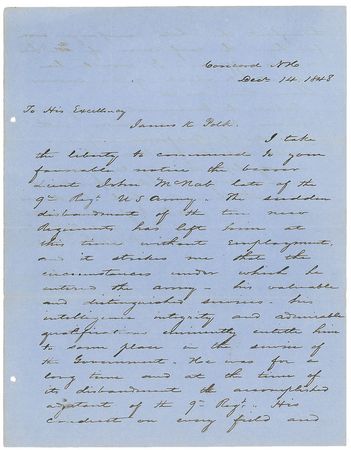 Concord N.H.
Decr 14. 1848
To His Excellency
James K Polk.
I take
the liberty to commend to your
favorable notice the bearer
Lieut John McNab late of the
9th Regt US Army. The sudden
disbandment of the ten new
Regiments has left him at
this time without Employment,
and it strikes me that the
circumstances under which he
entered the army - his valuable
and distinguished services - his
intelligence integrity and admirable
qualifications eminently entitle him
to some place in the service of
the Government. He was for a
long time and at the time of
its disbandment the accomplished
adjutant of the 9th Regt. His
Conduct on every field and